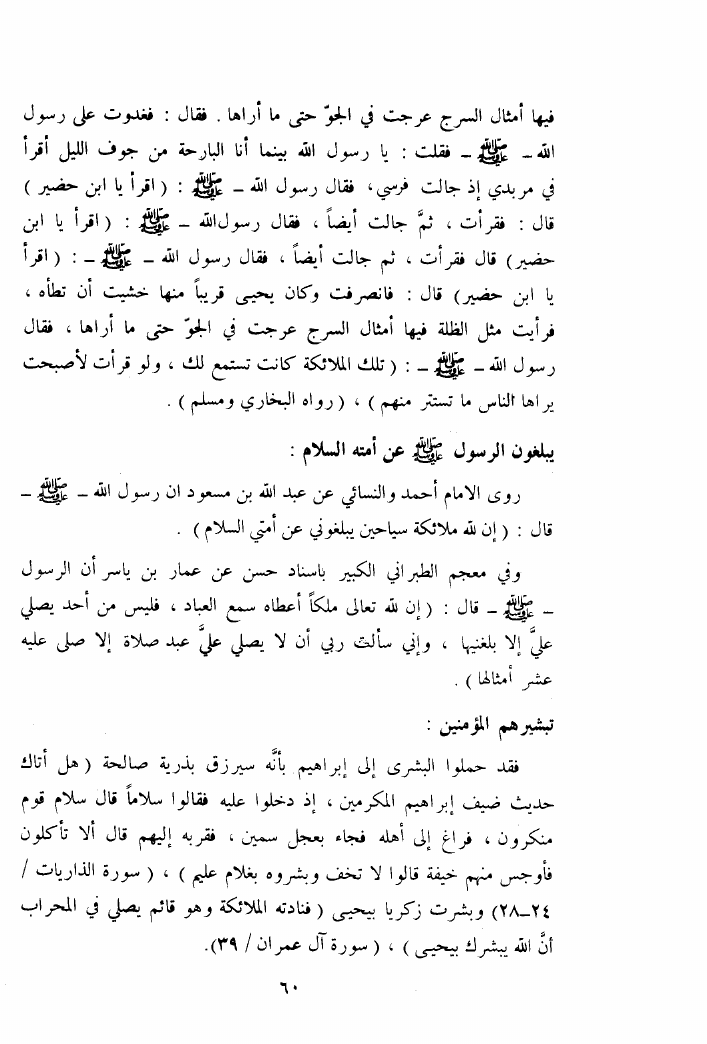 فيها أمثال السرج عرجت في الجوّ حتى ما أراها . فقال : فغدوت على رسول
الله – ﷺ – فقلت : يا رسول الله بينما أنا البارحة من جوف الليل أقرأ
في مربدي إذ جالت فرسي، فقال رسول الله – ﷺ : ( اقرأ يا ابن حضير )
قال : فقرأت ، ثمَّ جالت أيضاً ، فقال رسول الله – ﷺ : ( اقرأ يا ابن
حضير) قال فقرأت ، ثم جالت أيضاً ، فقال رسول الله – ﷺ –: ( اقرأ
يا ابن حضير) قال : فانصرفت وكان يحيى قريباً منها خشيت أن تطأه ،
فرأيت مثل الظلة فيها أمثال السرج عرجت في الجوّ حتى ما أراها ، فقال
رسول الله – ﷺ – : ( تلك الملائكة كانت تستمع لك ، ولو قرأت لأصبحت
يراها الناس ما تستتر منهم ) ، ( رواه البخاري ومسلم ) .
يبلغون الرسول ﷺ عن أمته السلام :
روى الامام أحمد والنسائي عن عبد الله بن مسعود ان رسول الله – ﷺ –
قال : ( إن لله ملائكة سياحين يبلغوني عن أمتي السلام ) .
وفي معجم الطبراني الكبير باسناد حسن عن عمار بن ياسر أن الرسول
– ﷺ – قال : ( إن لله تعالى ملكاً أعطاه سمع العباد ، فليس من أحد يصلي
عليَّ إلا بلغنيها ، وإني سألت ربي أن لا يصلي عليَّ عبد صلاة إلا صلى عليه
عشر أمثالها ) .
تبشيرهم المؤمنين :
فقد حملوا البشرى إلى إبراهيم بأنَّه سيرزق بذرية صالحة ( هل أتاك
حديث ضيف إبراهيم المكرمين ، إذ دخلوا عليه فقالوا سلاماً قال سلام قوم
منكرون ، فراغ إلى أهله فجاء بعجل سمين ، فقربه إليهم قال ألا تأكلون
فأوجس منهم خيفة قالوا لا تخف وبشروه بغلام عليم ) ، ( سورة الذاريات /
٢٤–٢٨) وبشرت زكريا بيحيى ( فنادته الملائكة وهو قائم يصلي في المحراب
أنَّ الله يبشرك بيحيى ) ، ( سورة آل عمران / ٣٩).
٦٠